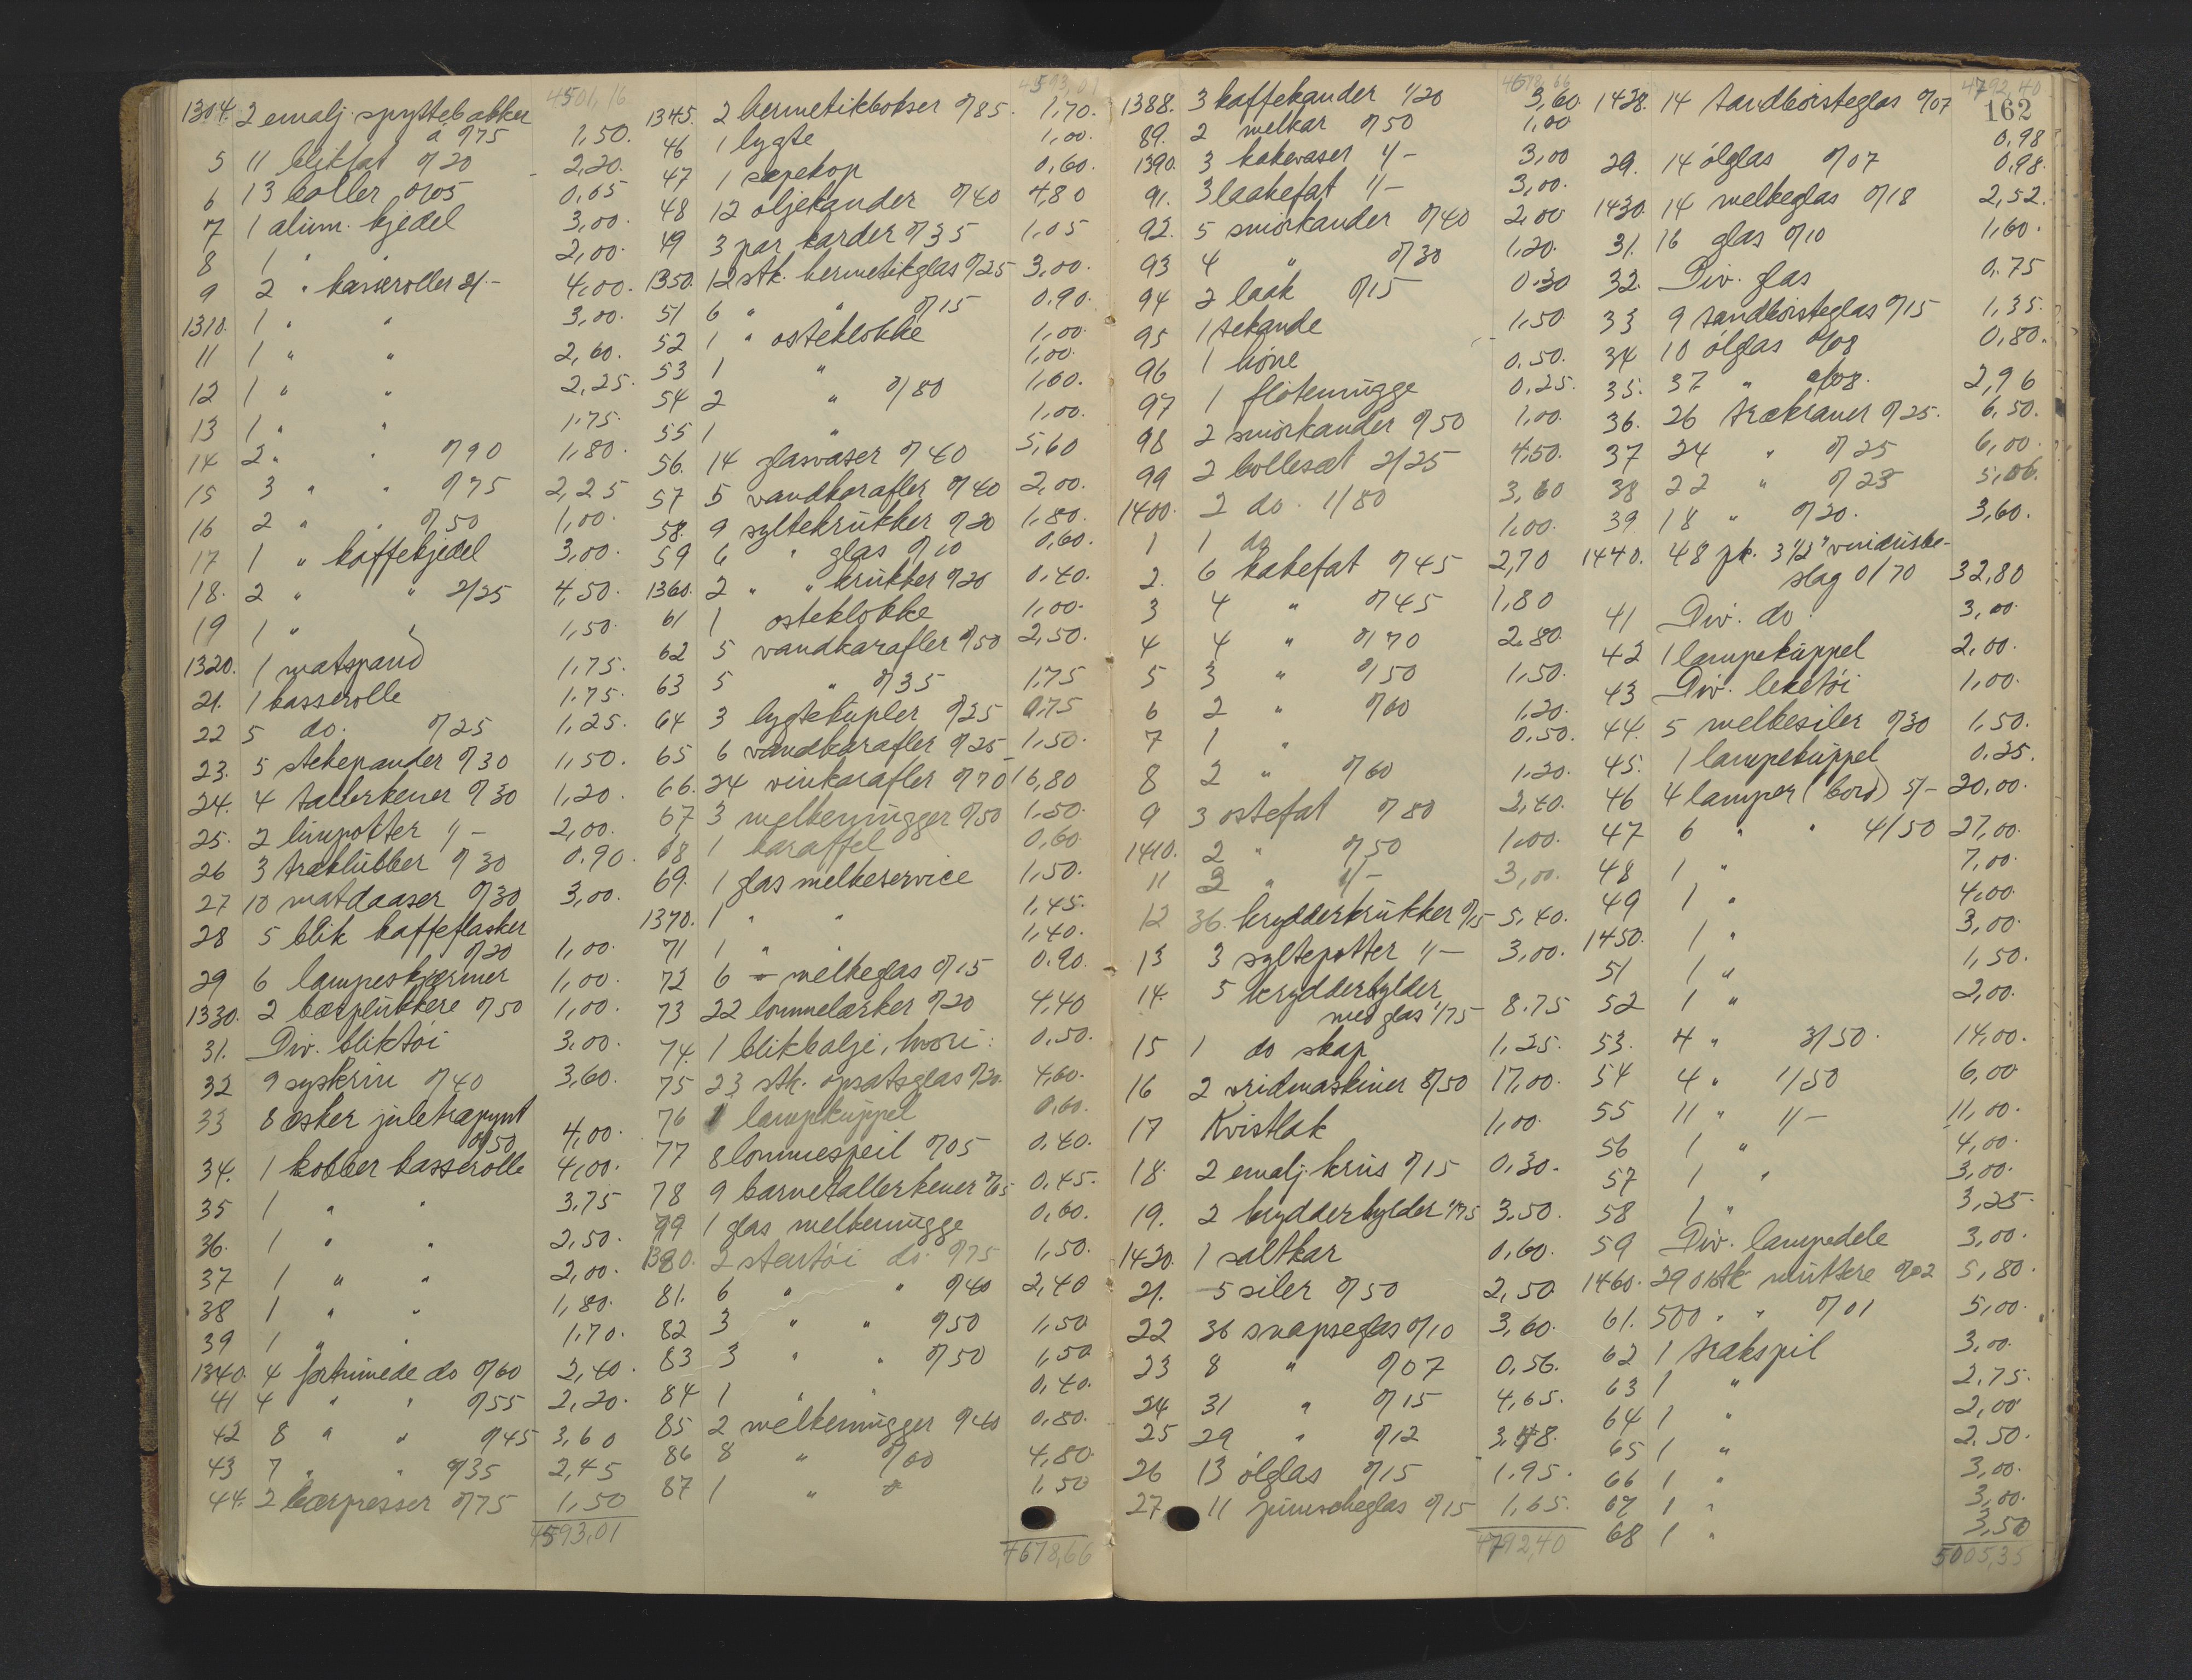 4501,16
1304. 2 emalj. spyttebakker
à 0/75 1,50.
5 11 blikfat 0/20 2,20.
6 13 boller 0/05 0,65
7 1 alum. kjedel 3,00.
8 1 " " 2,00.
9 2 " kasseroller 2/- 4,00.
1310. 1 " " 3,00.
11 1 " " 2,60.
12 1 " " 2,25.
13 1 " " 1,75.
14 2 " " 0/90 1,80.
15 3 " " 0/75 2,25
16 2 " " 0/50 1,00.
17 1 " kaffekjedel 3,00.
18. 2 " " 2/25 4,50.
19 1 " " 1,50.
1320. 1 matspand 1,75.
21. 1 kasserolle 1,75.
22 5 do. 0/25 1,25.
23. 5 stekepander 0/30 1,50.
24. 4 tallerkener 0/30 1,20.
25. 2 limpotter 1/- 2,00.
26 3 træklubber 0/30 0,90.
27 10 matdaaser 0/30 3,00.
28 5 blik kaffeflasker
0/20 1,00.
29 6 lampeskjærmer 1,00.
1330. 2 bærplukkere 0/50 1,00.
31. Div. bliktøi 3,00.
32 9 syskrin 0/40 3,60.
33 8 æsker juletrepynt
0/50 4,00.
34. 1 kobber kasserolle 4,00.
35 1 " " 3,75
36. 1 " " 2,50.
37 1 " " 2,00.
38 1 " " 1,80.
39 1 " " 1,70.
1340. 4 fortinnede do 0/60 2,40.
41 4 " " 0/55 2,20.
42 8 " " 0/45 3,60
43 7 " " 0/35 2,45
44. 2 bærpresser 0/75 1,50
4593,01
4593,01
1345. 2 hermetikbokser 0/85. 1,70.
46 1 lygte 1,00.
47 1 sæpekop 0,60.
48 12 oljekander 0/40 4,80
49 3 par karder 0/35 1,05
1350. 12 stk. hermetikglas 0/25 3,00.
51 6 " " 0/15 0,90.
52 1 " osteklokke 1,00.
53 1 " 1,00.
54 2 " 0/80 1,60.
55 1 " 1,00.
56. 14 glasvaser 0/40 5,60
57 5 vandkarafler 0/40 2,00.
58. 9 syltekrukker 0/20 1,80.
59 6 " glas 0/10 0,60.
1360. 2 " " krukker 0/20 0,40.
61 1 osteklokke 1,00.
62 5 vandkarafler 0/50 2,50.
63 5 " 0/35 1,75
64 3 lygtekupler 0/25 0,75
65 6 vandkarafler 0/25 1,50.
66. 24 vinkarafler 0/70 16,80
67 3 melkemugger 0/50 1,50.
68 1 karaffel 0,60
69. 1 glas melkeservice 1,50.
1370. 1 " " 1,45.
71 1 " " 1,40.
72 6 melkeglas 0/15 0,90.
73 22 lommelærker 0/20 4,40
74. 1 blikbalje, hvori: 0,50.
75 23 stk. opsatsglas 0/20. 4,60.
76 1 lampekuppel 0,60.
77 8 lommespeil 0/05 0,40.
78 9 barnetallerkener 0/05 0,45.
79 1 glas melkemugge 0,60.
1380. 2 stentøi do 0/75 1,50.
81. 6 " " 0/40 2,40
82 3 " " 0/50 1,50
83 3 " " 0/50 1,50
84 1 " " 0,40.
85 2 melkemugger 0/40 0,80.
86 8 " 0/60 4,80.
87 1 " 1,50
4678,66
4678,66
1388. 3 kaffekander 1/20 3,60.
89. 2 melkar 0/50 1,00
1390. 3 kakevaser 1/- 3,00
91. 3 laakefat 1/- 3,00.
92. 5 smørkander 0/40 2,00
93 4 " 0/30 1,20.
94 2 laak 0/15 0,30
95 1 tekande 1,50
96 1 høne 0,50.
97 1 fløtemugge 0,25.
98 2 smørkander 0/50 1,00.
99 2 bollesæt 2/25 4,50.
1400. 2 do. 1/80 3,60
1 1 do 1,00.
2. 6 kakefat 0/45 2,70
3 4 " 0/45 1,80
4 4 " 0/70 2,80
5 3 " 0/50 1,50.
6 2 " 0/60 1,20.
7 1 " 0,50.
8 2 " 0/60 1,20.
9 3 ostefat 0/80 2,40.
1410. 2 " 0/50 1,00.
11 3 " 1/- 3,00.
12 36 krydderkrukker 0/15 5,40.
13 3 syltepotter 1/- 3,00.
14. 5 krydderhylder
med glas 1/75 8,75
15 1 do skap 1,25.
16 2 vridmaskiner 8/50 17,00.
17 Kvistlak 1,00.
18. 2 emalj. krus 0/15 0,30.
19. 2 krydderhylder 1/75 3,50.
1420. 1 saltkar 0,60.
21. 5 siler 0/50 2,50
22 36 snapseglas 0/10 3,60.
23 8 " 0/07 0,56.
24 31 " 0/15 4,65.
25 29 " 0/12 3,48.
26 13 ølglas 0/15 1,95.
27 11 punscheglas 0/15 1,65.
4792,40
4792,40
162
1428. 14 tandbørsteglas 0/07 0,98
29. 14 ølglas 0/07 0,98.
1430. 14 melkeglas 0/18 2,52.
31. 16 glas 0/10 1,60.
32. Div. glas 0,75
33 9 tandbørsteglas 0/15 1,35.
34 10 ølglas 0/08 0,80.
35. 37 " 0/08. 2,96
36. 26 trækraner 0/25. 6,50.
37 24 " 0/25 6,00.
38 22 " 0/23 5,06.
39 18 " 0/20. 3,60.
1440. 48 pk. 3 1/2" vindusbe-
slag 0/70 32,80
41 Div. do. 3,00.
42 1 lampekuppel 2,00.
43 Div. leketøi 1,00.
44. 5 melkesiler 0/30 1,50.
45. 1 lampekuppel 0,25.
46 4 lamper (bord) 5/- 20,00.
47 6 " " 4/50 27,00.
48 1 " 7,00.
49 1 " 4,00.
1450. 1 " 3,00.
51 1 " 1,50.
52 1 " 2,00.
53. 4 " 3/50. 14,00.
54 4 " 1/50 6,00
55 11 " 1/- 11,00.
56 1 " 4,00.
57 1 " 3,00.
58 1 " 3,25.
59 Div. lampedele 3,00.
1460. 290 stk muttere 0/02 5,80.
61. 500 " " 0/01 5,00.
62 1 trækspil 3,00.
63 1 " 2,75.
64 1 " 2,00
65 1 " 2,50.
66 1 " 3,00.
67 1 " 3,00.
68 1 " 3,50
5005,35